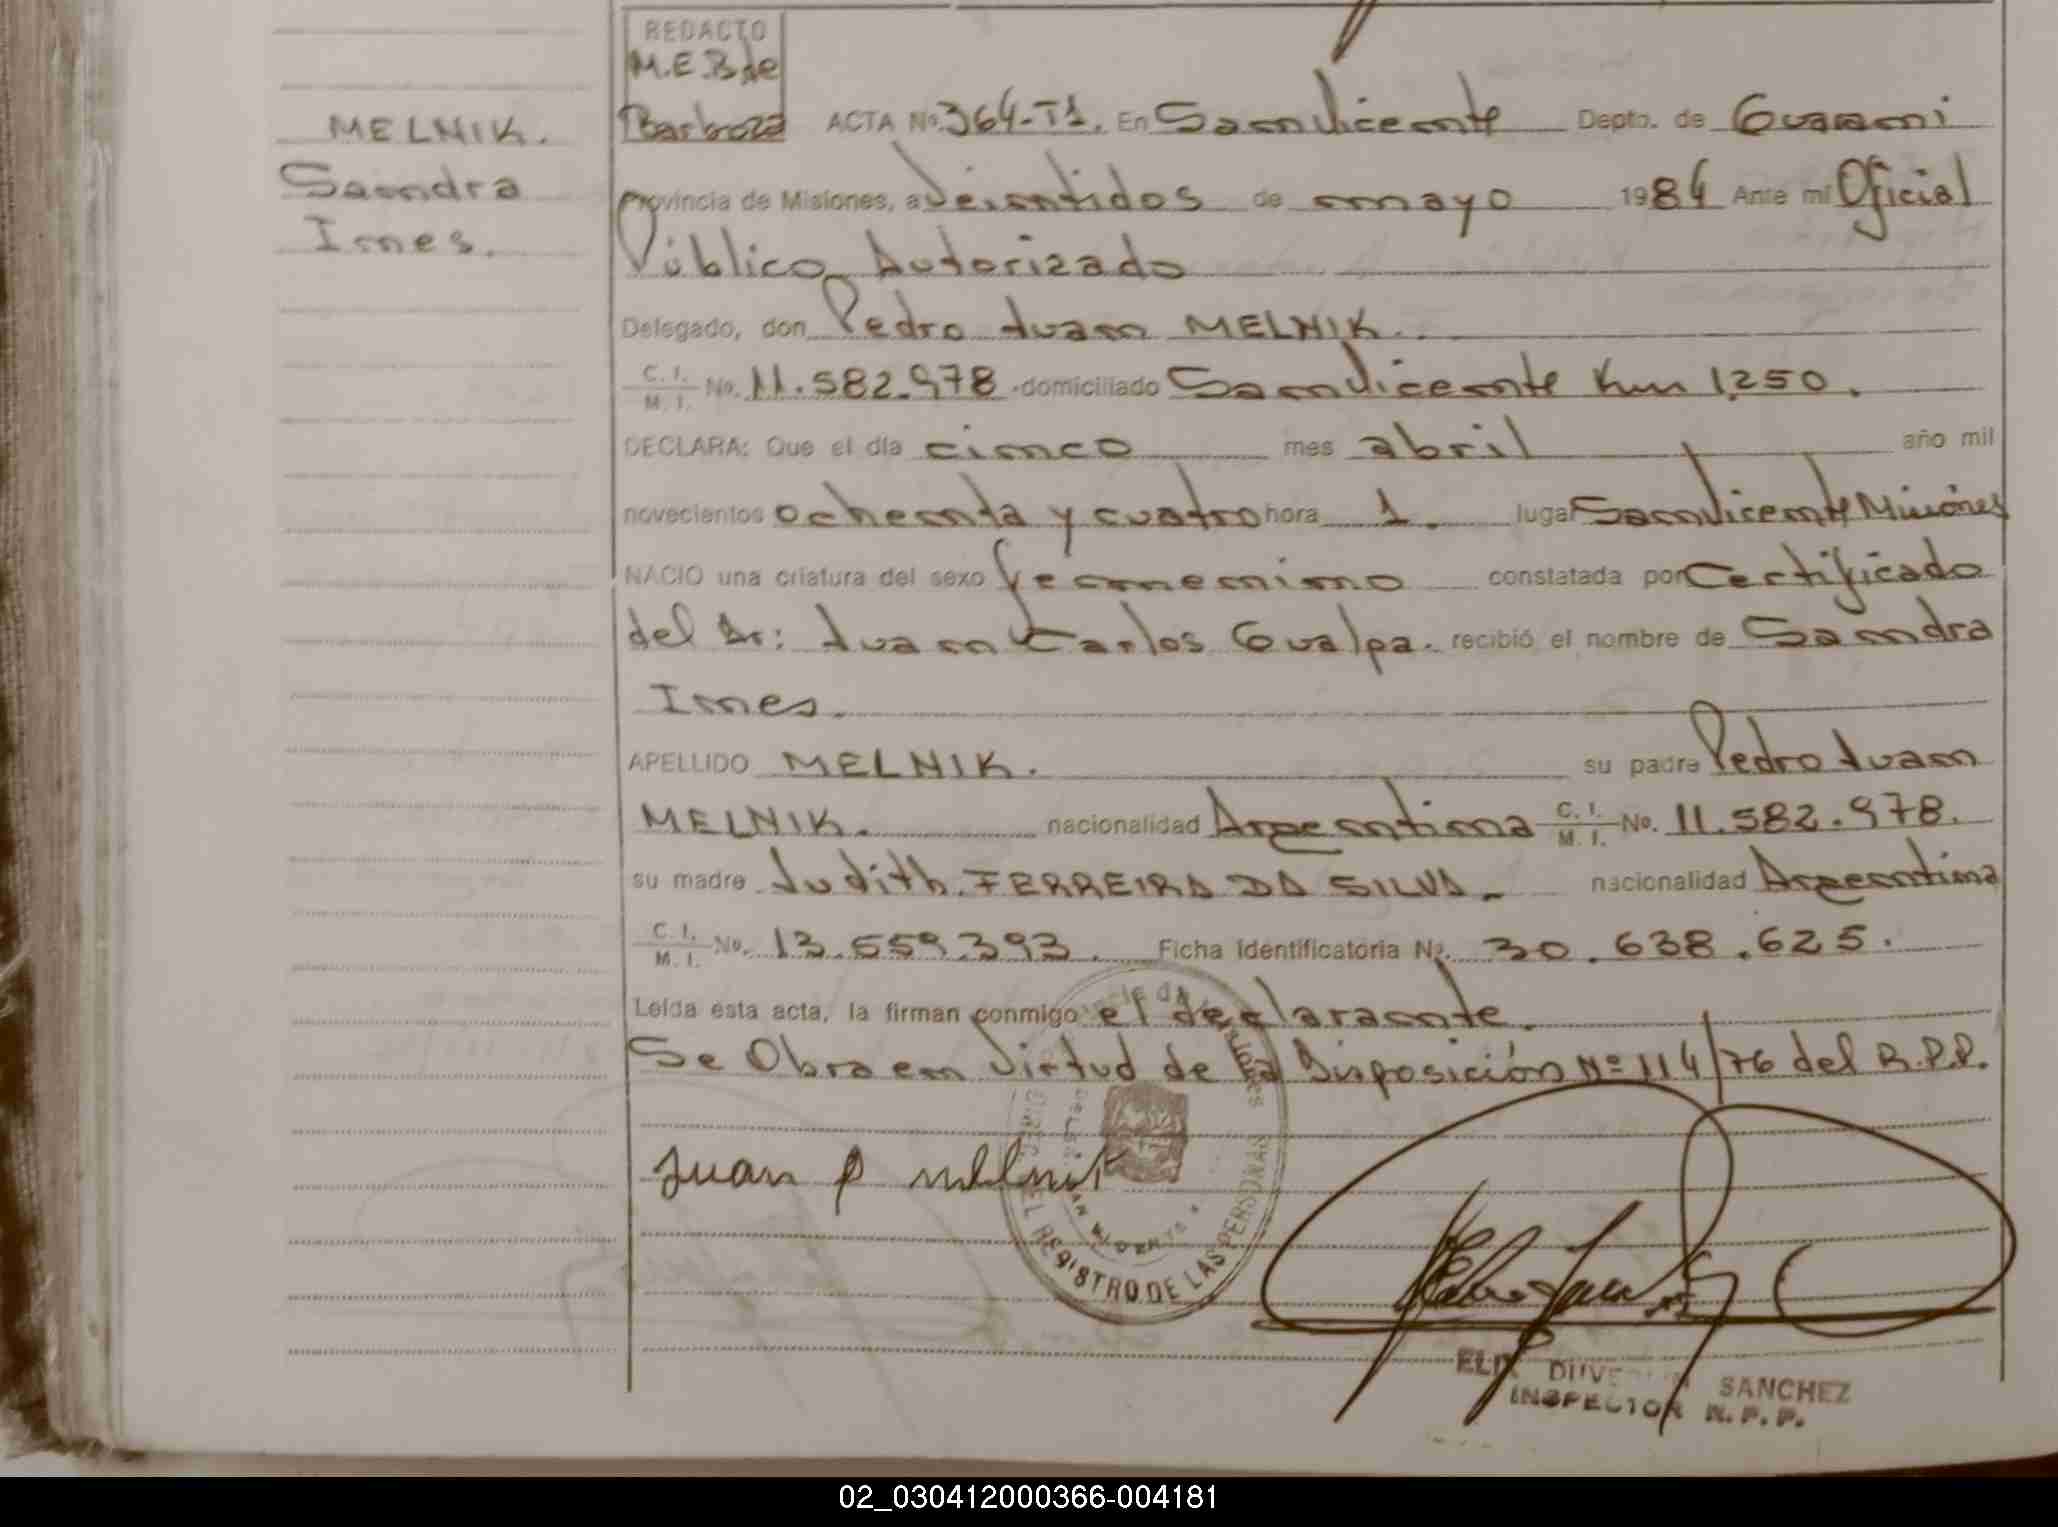 REDACTO
M.E.B de
Barboza ACTA No. 364-T1. En San Vicente Depto. de Guarani
MELNIK.
Provincia de Misiones, a Veintidos de mayo 1984 Ante mi Oficial
Sandra
Ines.
Público Autorizado
Delegado, don Pedro Juan MELNIK.
C. I. / M. I. No. 11.582.978 domiciliado San Vicente Km 1,250.
DECLARA: Que el día cinco mes abril año mil
novecientos ochenta y cuatro hora 1. lugar San Vicente Misiones
NACIO una criatura del sexo femenino constatada por Certificado
del Dr: Juan Carlos Gualpa. recibió el nombre de Sandra
Ines.
APELLIDO MELNIK. su padre Pedro Juan
MELNIK. nacionalidad Argentina C. I. / M. I. No. 11.582.978.
su madre Judith FERREIRA DA SILVA. nacionalidad Argentina
C. I. / M. I. No. 13.559.393. Ficha Identificatoria No. 30.638.625.
Leída esta acta, la firman conmigo el declarante.
Se Obra en Virtud de la Disposición Nº 114/76 del R.P.P.
Juan P Melnik
DEL REGISTRO DE LAS PERSONAS
SAN VICENTE
SANCHEZ
INSPECTOR R. P. P.
02_030412000366-004181